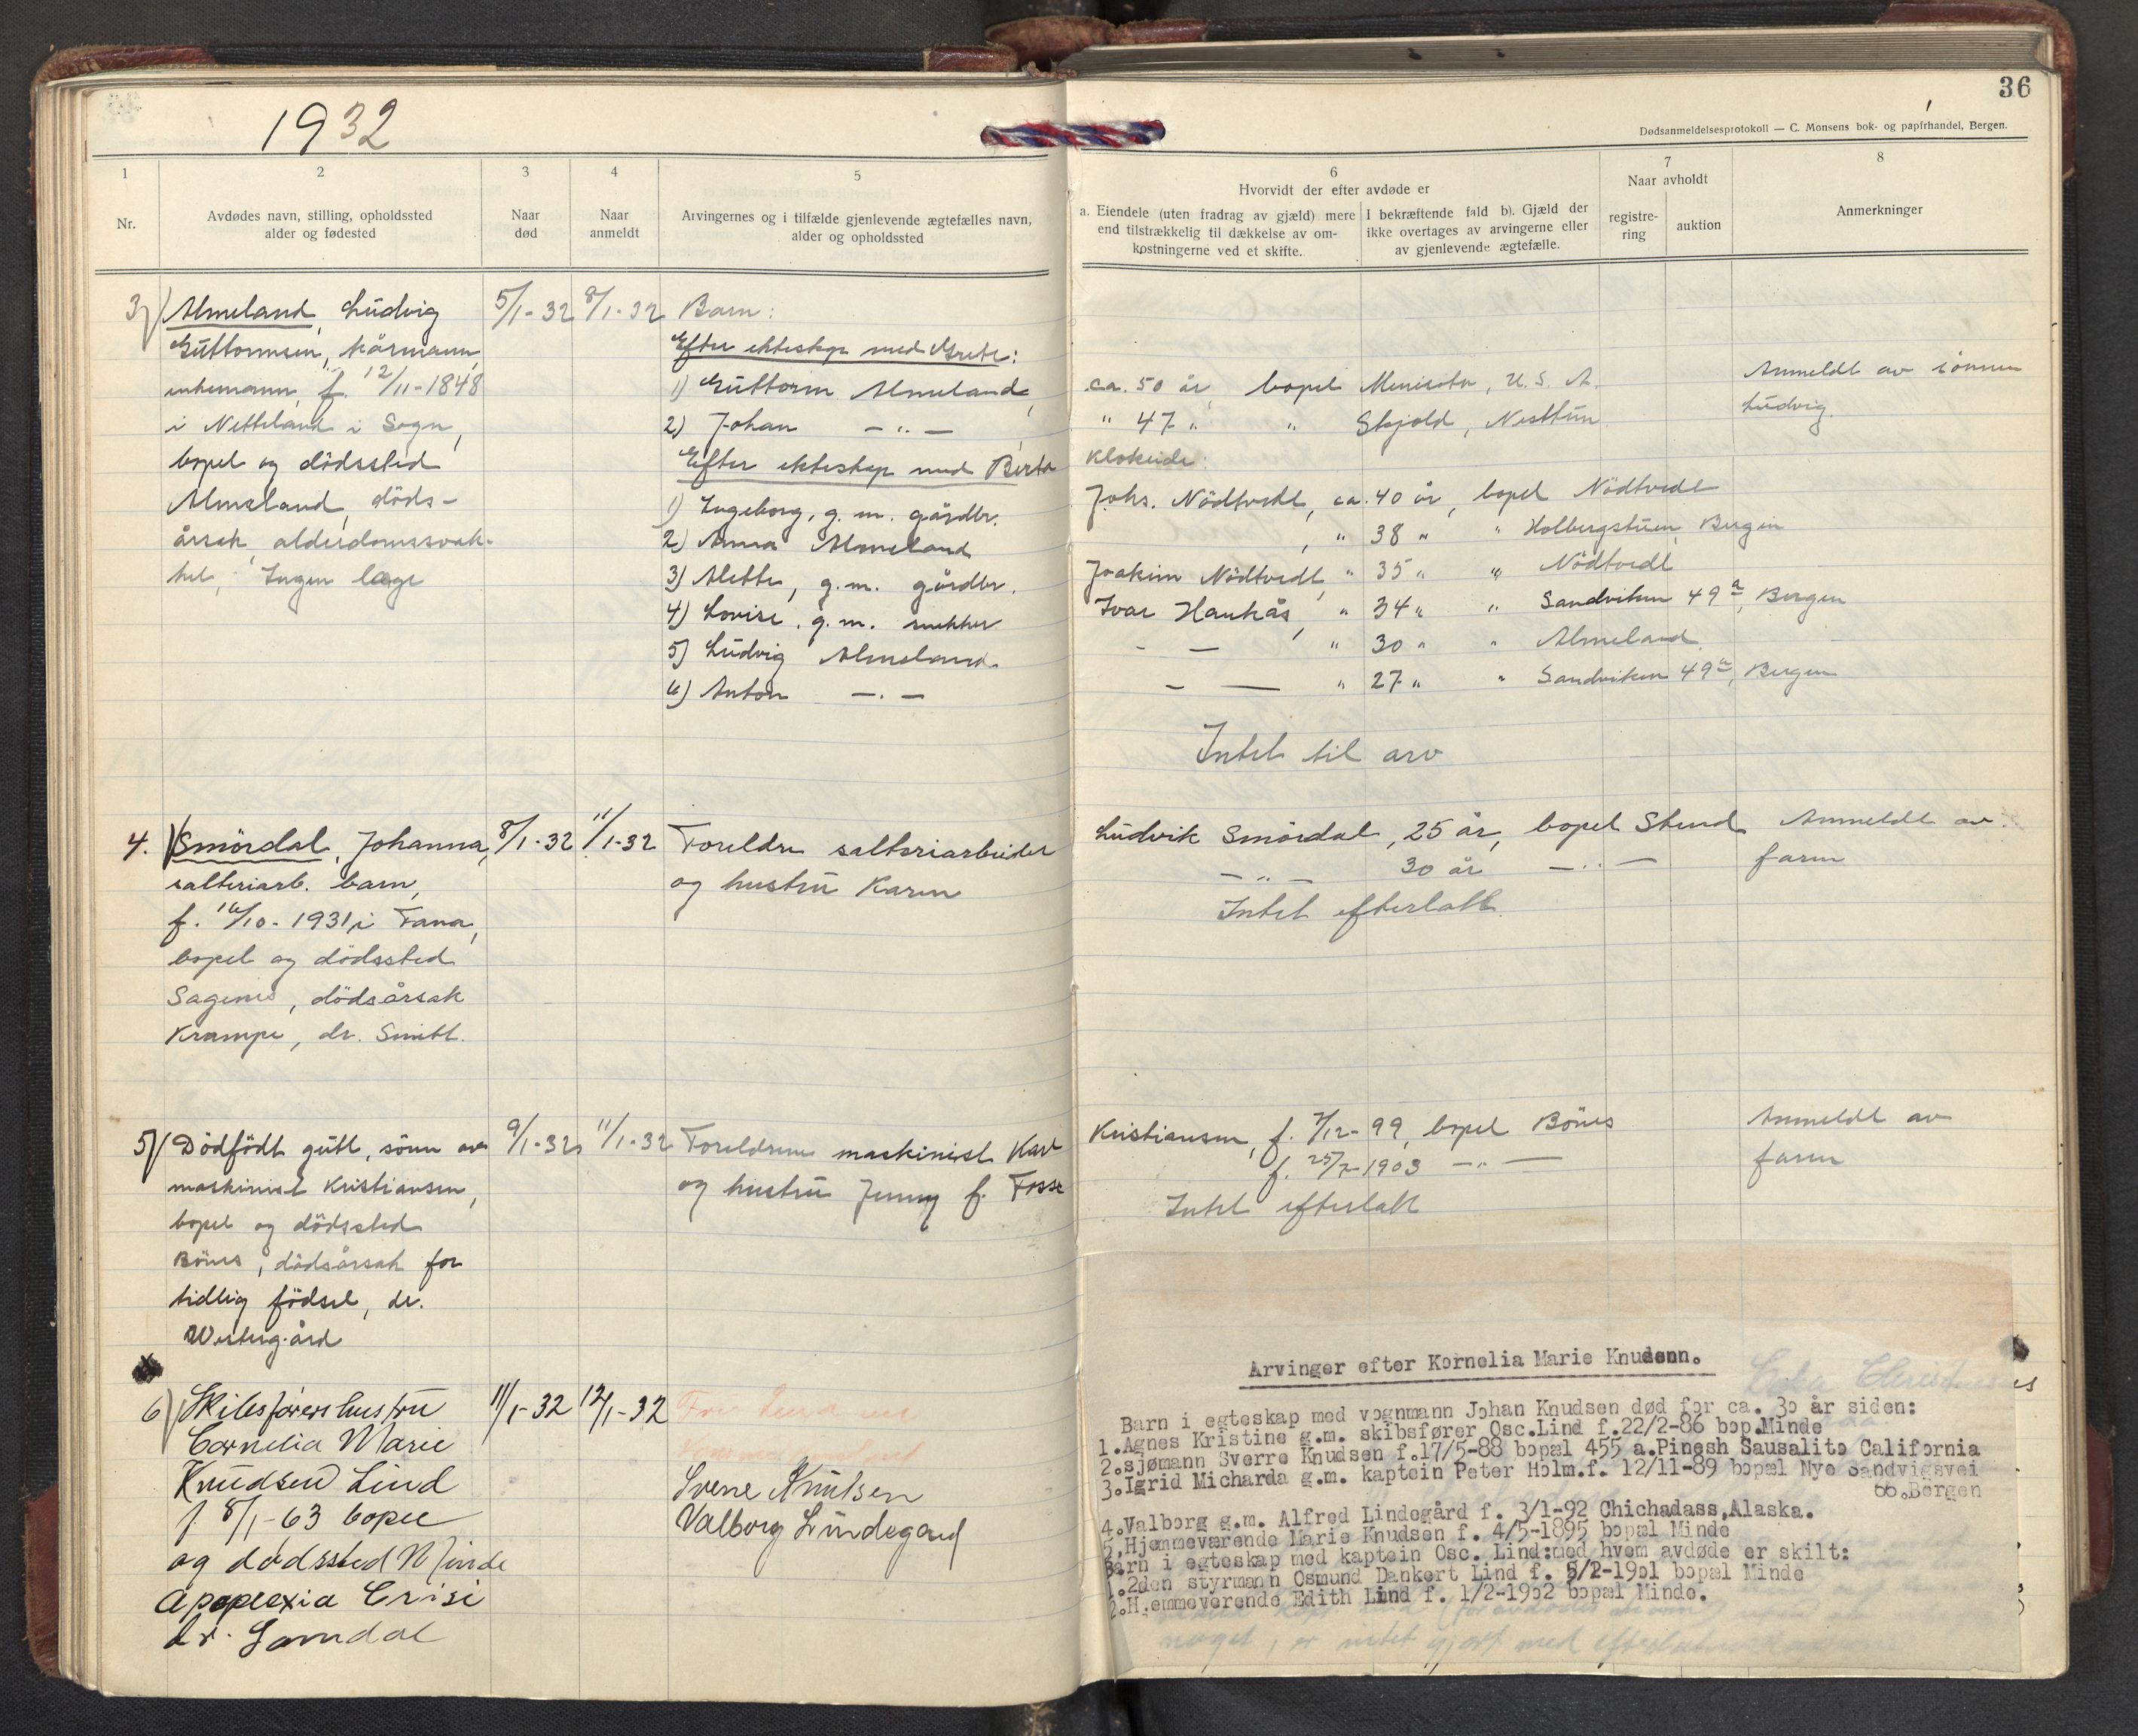 1932
36
Dødsanmeldelsesprotokoll — C. Monsens bok- og papirhandel, Bergen.
1
2
3
4
5
6
7
8
Nr.
Avdødes navn, stilling, opholdssted
alder og fødested
Naar
død
Naar
anmeldt
Arvingernes og i tilfælde gjenlevende ægtefælles navn,
alder og opholdssted
Hvorvidt der efter avdøde er
a. Eiendele (uten fradrag av gjæld) mere
end tilstrækkelig til dækkelse av om-
kostningerne ved et skifte.
I bekræftende fald b). Gjæld der
ikke overtages av arvingerne eller
av gjenlevende ægtefælle.
Naar avholdt
registre-
ring
auktion
Anmerkninger
3) Almeland, Ludvig
Guttormsen, kårmann,
enkemann, f. 12/11-1848
i Netteland i Sogn,
bopel og dödssted
Almeland, döds-
årsak alderdomssvak-
het, Ingen læge
5/1-32 8/1-32
Barn:
Efter ekteskap med Grete:
1) Guttorm Almeland, ca. 50 år, bopel Minisota, U.S.A.
2) Johan —"— " 47 " " Skjold, Nesttun
Efter ekteskap med Berta Klokeide:
1) Ingeborg, g. m. gårdbr. Johs. Nödtvedt, ca. 40 år, bopel Nödtvedt
2) Anna Almeland, " 38 " " Holbergstuen, Bergen
3) Alette, g.m. gårdbr. Joakim Nödtvedt, " 35 " " Nödtvedt
4) Lovise, g.m. snekker Ivar Haukås, " 34 " " Sandviken 49 a, Bergen
5) Ludvig Almeland - — " 30 " " Almeland.
6) Anton —"— - — " 27 " " Sandviken 49 a, Bergen
Intet til arv
Anmeldt av sönnen
Ludvig.
4. Smördal, Johanna,
salteriarb. barn,
f. 16/10-1931 i Fana,
bopel og dödssted
Sagenes, dödsårsak
Krampe, dr. Smitt.
8/1-32 11/1-32
Foreldre salteriarbeider Ludvik Smördal, 25 år, bopel Stend
og hustru Karen —"— 30 år —"—
Intet efterlatt.
Anmeldt av
faren
5) Dödfödt gutt, sönn av
maskinist Kristiansen,
bopel og dödssted
Bönes, dödsårsak for
tidlig födsel, dr.
Westergård
9/1-32 11/1-32
Foreldrene maskinist Karl Kristiansen, f. 7/12-99, bopel Bönes
og hustru Jenny f. Fosse f. 25/7-1903 —"—
Intet efterlatt
Anmeldt av
faren
6) Skibsførers hustru
Cornelia Marie
Knudsen Lind
f. 8/1-63 bopel
og dødssted Minde
Apoplexia Crisi
dr. Lomdal
11/1-32 12/1-32
Svene Knutsen
Valborg Lindegard
Arvinger efter Kornelia Marie Knudsenn.
Barn i egteskap med vognmann Johan Knudsen død for ca. 3o år siden:
1.Agnes Kristine g.m. skibsfører Osc.Lind f.22/2-86 bop.Minde
2.sjømann Sverre Knudsen f.17/5-88 bopæl 455 a.Pinesh Sausalito California
3.Igrid Micharda g.m. kaptein Peter Holm.f. 12/11-89 bopæl Nye Sandvigsvei
66.Bergen
4.Valborg g.m. Alfred Lindegård f. 3/1-92 Chichadass,Alaska.
5.Hjemmeværende Marie Knudsen f. 4/5-1895 bopæl Minde
Barn i egteskap med kaptein Osc. Lind:med hvem avdøde er skilt:
1.2den styrmann Osmund Dankert Lind f. 5/2-19o1 bopæl Minde
2.H.emmeverende Edith Lind f. 1/2-19o2 bopæl Minde.
noget, er intet gjort med